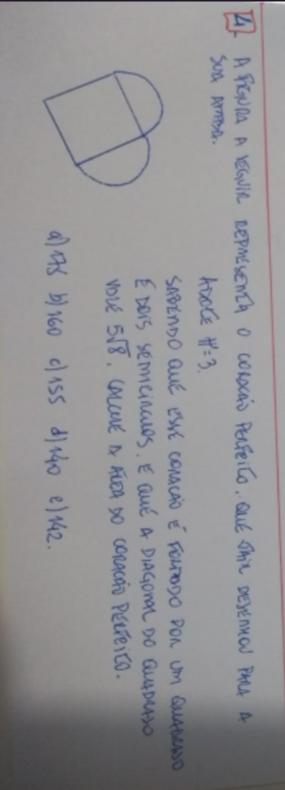 4 A FIGURA A SEGUIR REPRESENTA O CORAÇÃO PERFEITO, QUE DESENHOU PARA A
SUA AMADA.
ADOTE π=3.
SABENDO QUE ESSE CORAÇÃO É FORMADO POR UM QUADRADO
E DOIS SEMICÍRCULOS, E QUE A DIAGONAL DO QUADRADO
VALE 5√8, CALCULE A ÁREA DO CORAÇÃO PERFEITO.
a) 175 b) 160 c) 155 d) 140 e) 142.